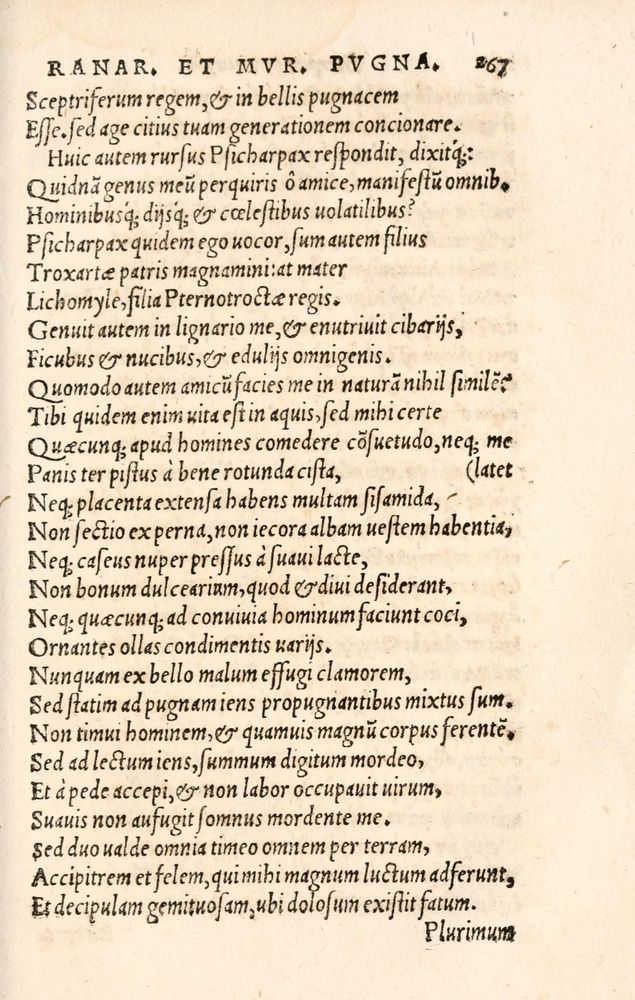 RANAR. ET MVR. PVGNA. 267
Sceptriferum regem, & in bellis pugnacem
Esse. sed age citius tuam generationem concionare.
Huic autem rursus Psicharpax respondit, dixitq́;:
Quidnã genus meũ perquiris ô amice, manifestũ omnib.
Hominibusq́; dijsq́; & cœlestibus uolatilibus?
Psicharpax quidem ego uocor, sum autem filius
Troxartæ patris magnamini: at mater
Lichomyle, filia Pternotroctæ regis.
Genuit autem in lignario me, & enutriuit cibarijs,
Ficubus & nucibus, & edulijs omnigenis.
Quomodo autem amicũ facies me in naturã nihil similẽ?
Tibi quidem enim uita est in aquis, sed mihi certe
Quæcunq; apud homines comedere cõsuetudo, neq; me
Panis ter pistus à bene rotunda cista, (latet
Neq; placenta extensa habens multam sisamida,
Non sectio ex perna, non iecora albam uestem habentia,
Neq; caseus nuper pressus à suaui lacte,
Non bonum dulcearium, quod & diui desiderant,
Neq; quæcunq; ad conuiuia hominum faciunt coci,
Ornantes ollas condimentis uarijs.
Nunquam ex bello malum effugi clamorem,
Sed statim ad pugnam iens propugnantibus mixtus sum.
Non timui hominem, & quamuis magnũ corpus ferentẽ.
Sed ad lectum iens, summum digitum mordeo,
Et à pede accepi, & non labor occupauit uirum,
Suauis non aufugit somnus mordente me.
Sed duo ualde omnia timeo omnem per terram,
Accipitrem et felem, qui mihi magnum luctum adferunt,
Et decipulam gemituosam, ubi dolosum existit fatum.
Plurimum